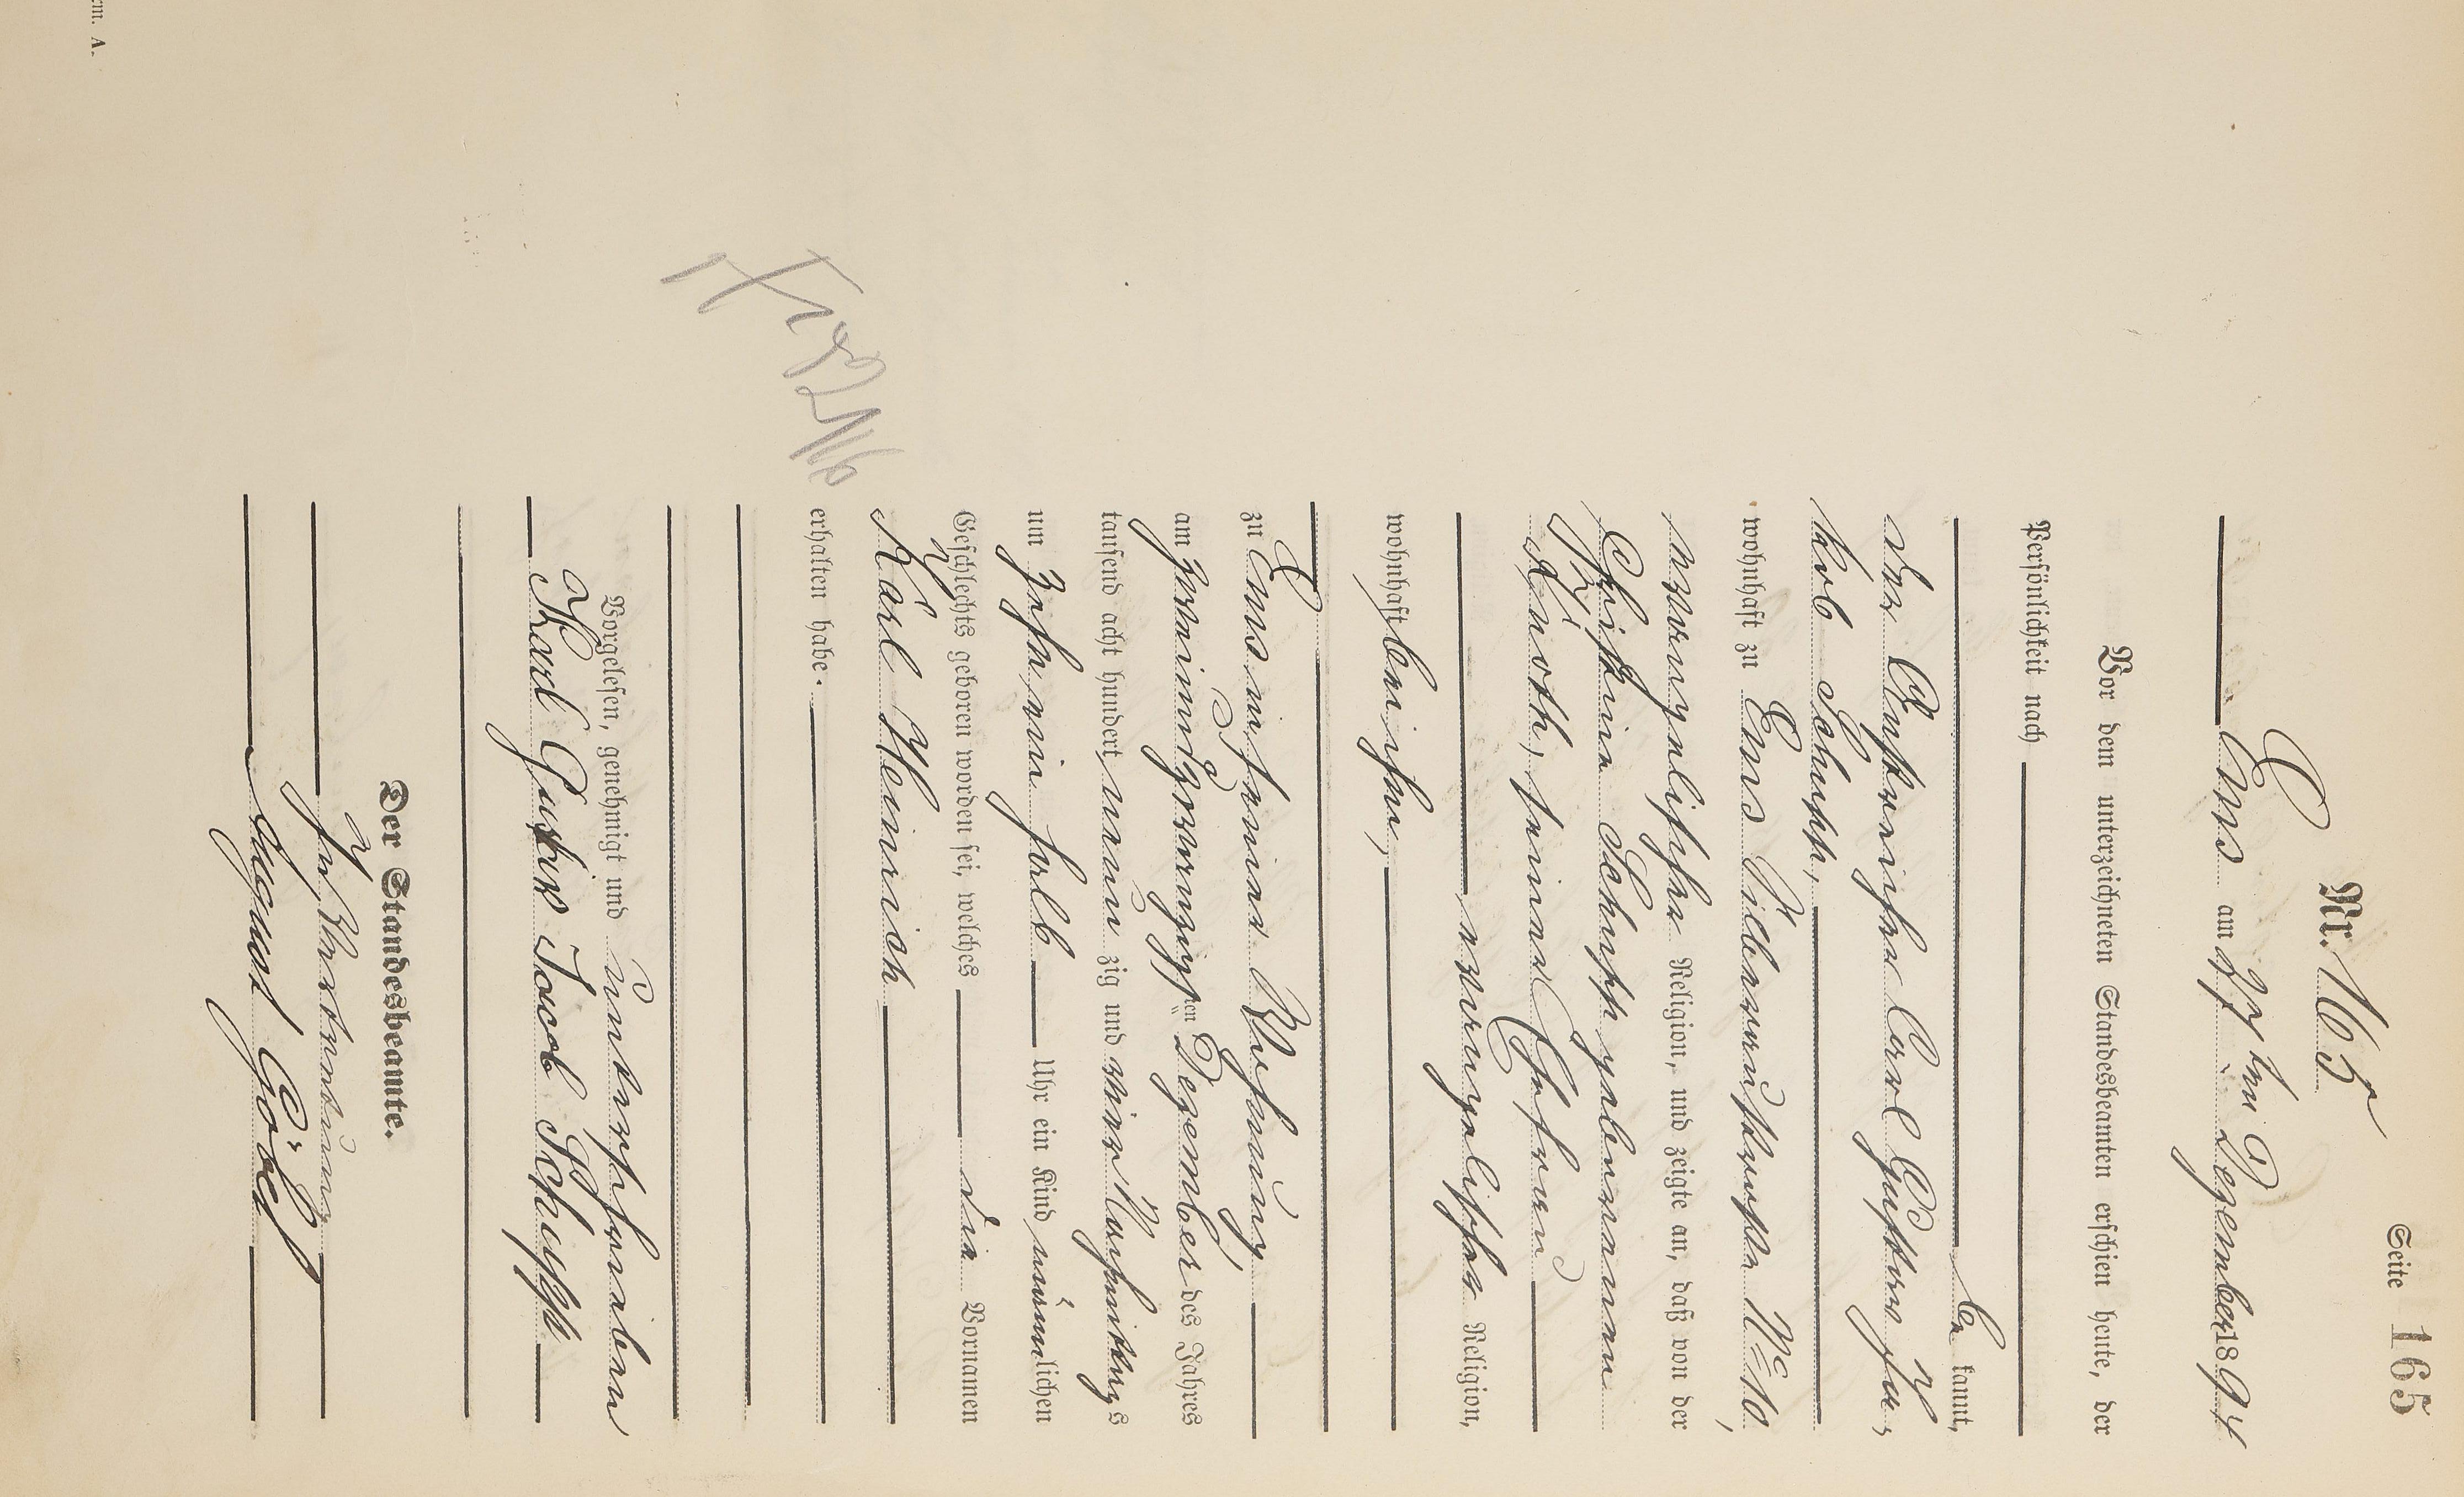 Seite 165
Nr. 165
Ems am 27ten Dezember 1894
Vor dem unterzeichneten Standesbeamten erschien heute, der
Persönlichkeit nach
be kannt,
der Carl Gustav Ja-
kob Schupp,
wohnhaft zu Ems Silberaustraße No 10,
evangelischer Religion, und zeigte an, daß von der
Schupp geborenen
Knoth, seiner Ehefrau
evangelischer Religion,
wohnhaft bei ihm,
zu Ems in seiner Wohnung,
am zweiundzwanzigsten Dezember des Jahres
tausend acht hundert neun zig und vier Nachmittags
um zehn ein halb Uhr ein Kind männlichen
Geschlechts geboren worden sei, welches die Vornamen
Karl Heinrich
erhalten habe.
Vorgelesen, genehmigt und unterschrieben
Karl Gustav Jacob Schupp
Der Standesbeamte.
In Vertretung
August Göbel
A.